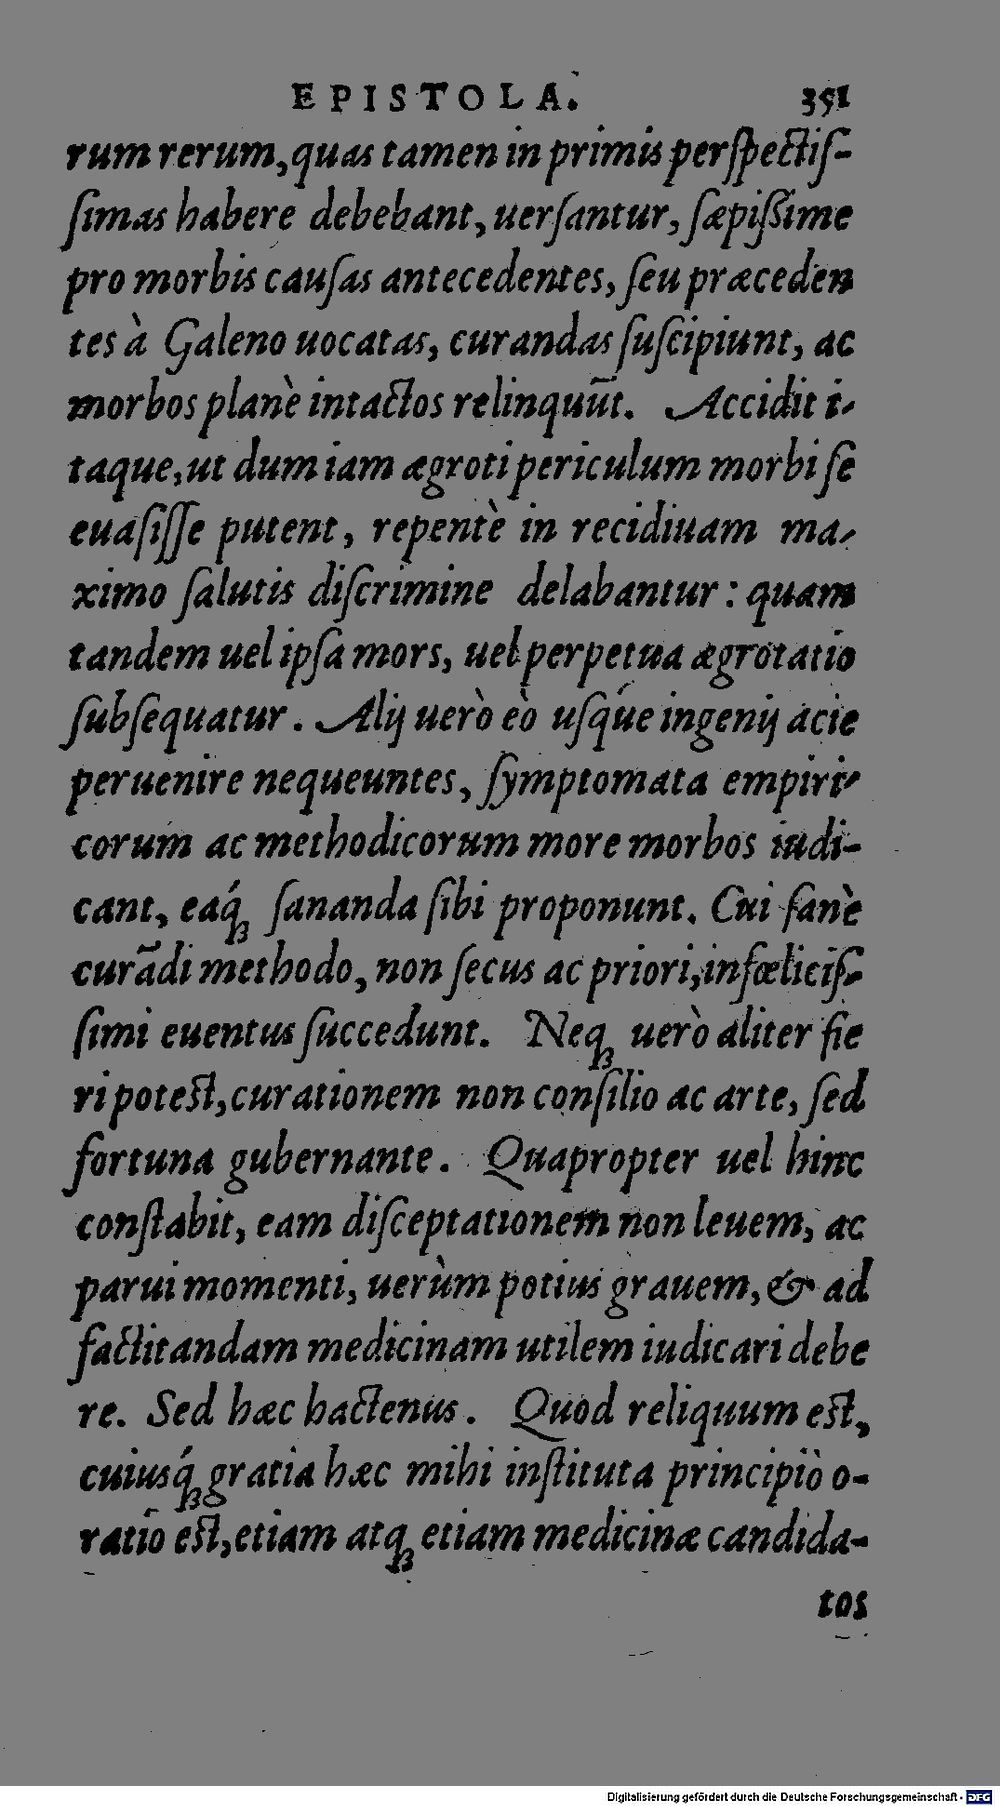 EPISTOLA. 351
rum rerum, quas tamen in primis perſpectiſ-
ſimas habere debebant, uerſantur, ſæpißime
pro morbis cauſas antecedentes, ſeu præceden
tes à Galeno uocatas, curandas ſuſcipiunt, ac
morbos planè intactos relinquũt. Accidit i-
taque, ut dum iam ægroti periculum morbi ſe
euaſiſſe putent, repentè in recidiuam ma-
ximo ſalutis diſcrimine delabantur: quam
tandem uel ipſa mors, uel perpetua ægrotatio
ſubſequatur. Alij uerò eò uſq́ue ingenij acie
peruenire nequeuntes, ſymptomata empiri-
corum ac methodicorum more morbos iudi-
cant, eaq́ꝫ ſananda ſibi proponunt. Cui ſanè
curãdi methodo, non ſecus ac priori, infœliciſ-
ſimi euentus ſuccedunt. Neqꝫ uerò aliter fie
ri poteſt, curationem non conſilio ac arte, ſed
fortuna gubernante. Quapropter uel hinc
conſtabit, eam diſceptationem non leuem, ac
parui momenti, uerùm potius grauem, & ad
factitandam medicinam utilem iudicari debe
re. Sed hæc hactenus. Quod reliquum eſt,
cuiusq́ꝫ gratia hæc mihi inſtituta principiò o-
ratio eſt, etiam atqꝫ etiam medicinæ candida-
tos
Digitalisierung gefördert durch die Deutsche Forschungsgemeinschaft - DFG